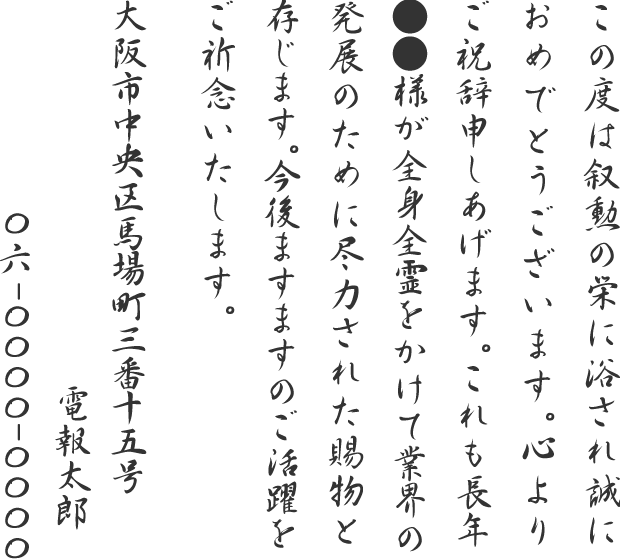 この度は叙勲の栄に浴され誠に
おめでとうございます。心より
ご祝辞申しあげます。これも長年
●●様が全身全霊をかけて業界の
発展のために尽力された賜物と
存じます。今後ますますのご活躍を
ご祈念いたします。
大阪市中央区馬場町三番十五号
電報太郎
〇六－〇〇〇〇－〇〇〇〇